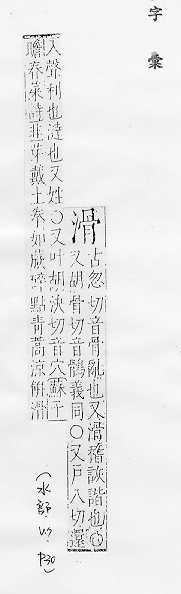 字彙
滑
古忽切音骨亂也又滑稽詼諧也○
又胡骨切音鶻義同○又戶八切還
入聲利也澾也又姓○又叶胡決切音穴蘇子
瞻春菜詩韭芽戴土拳如蕨碎點青蒿涼餅滑
(水部 P30)